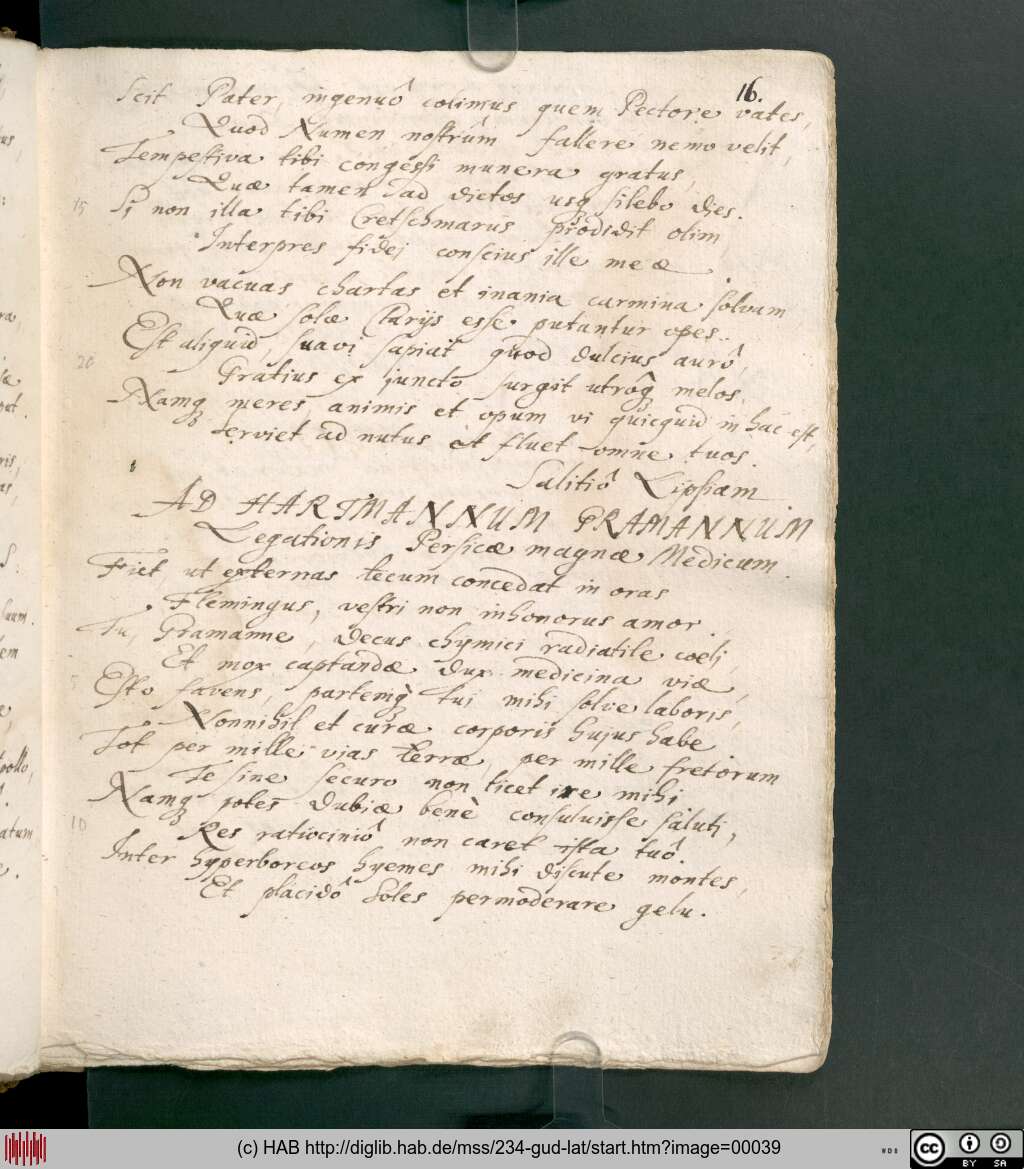 16.
Scit Pater, ingenuô colimus quem Pectore vates,
Quod Numen nostrûm fallere nemo velit,
Tempestiva tibi congessi munera gratus,
Quæ tamen ad dictos usq silebo dies.
15 Si non illa tibi Cretschmarus prodidit olim
Interpres fidej conscius ille meæ.
Non vacuas chartas et inania carmina solvam
Quæ solæ Clarijs esse putantur opes.
Est aliquid, suavi sapiat quod dulcius aurô,
20 Gratius ex juncto surgit utroq melos.
Namq meres animis et opum vi quicquid in hâc est,
Serviet ad nutus et fluet omne tuos.
Salitiô Lipsiam
AD HARTMANNUM GRAMANNUM
Legationis Persicæ magnæ Medicum.
Fiet ut externas tecum concedat in oras
Flemingus, vestri non inhonorus amor.
Tu, Gramanne, decus chymici radiatile coeli,
Et mox captandæ dux medicina viæ,
5 Esto favens, partemq tui mihi solve laboris,
Nonnihil et curæ corporis hujus habe.
Tot per mille vias terræ, per mille fretorum
Te sine securo non licet ire mihi
Namq potes dubiæ benè consuluisse saluti,
10 Res ratiociniô non caret ista tuô.
Inter hyperboreos hyemes mihi discute montes,
Et placidô Soles permoderare gelu.
(c) HAB http://diglib.hab.de/mss/234-gud-lat/start.htm?image=00039
WDB
cc BY SA